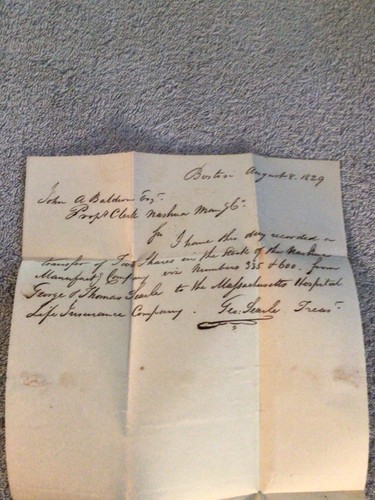 Boston August 8. 1829
John A Baldwin Esqr.
Propr Clerk Nashua Manfg Co.
Sir I have this day recorded a
transfer of Two Shares in the Stock of the Nashua
Manufactg Company viz Numbers 335 & 600. from
George & Thomas Searle to the Massachusetts Hospital
Life Insurance Company. Geo: Searle Treasr.